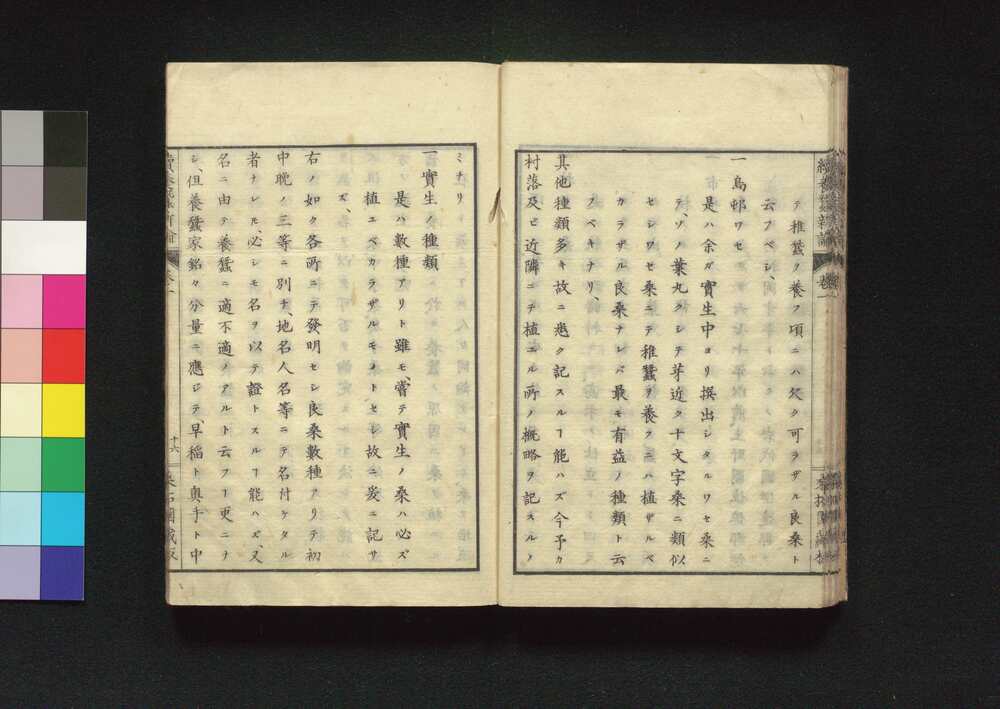 テ稚蠶ヲ養フ項ニハ欠ク可ラザル良桑ト
云フベシ、
一烏邨ワセ
是ハ余ガ實生中ヨリ撰出シタルワセ桑ニ
テ、ソノ葉丸クシテ芽近ク十文字桑ニ類似
セシワセ桑ニテ稚蠶ヲ養フニハ植ザルベ
カラザル良桑ナレバ最モ有益ノ種類ト云
フベキナリ、
其他種類多キ故ニ悉ク記スルヿ能ハズ今予カ
村落及ビ近隣ニテ植ユル所ノ概略ヲ記スルノ
續養蠶新論
卷一
ミナリ
一實生ノ種類
是ハ數種アリト雖モ、嘗テ實生ノ桑ハ必ズ
植ユベカラザルモノトセシ故ニ爰ニ記サ
ズ、
右ノ如ク各所ニテ發明セシ良桑數種アリテ初
中晚ノ三等ニ別チ、地名人名等ニテ名付ケタル
者ナレモ、必シモ名ヲ以テ證トスルヿ能ハズ、又
名ニ由テ養蠶ニ適不適ノアルト云フヿ更ニナ
シ、但養蠶家銘々分量ニ應ジテ、早稲ト奥手ト中
十六